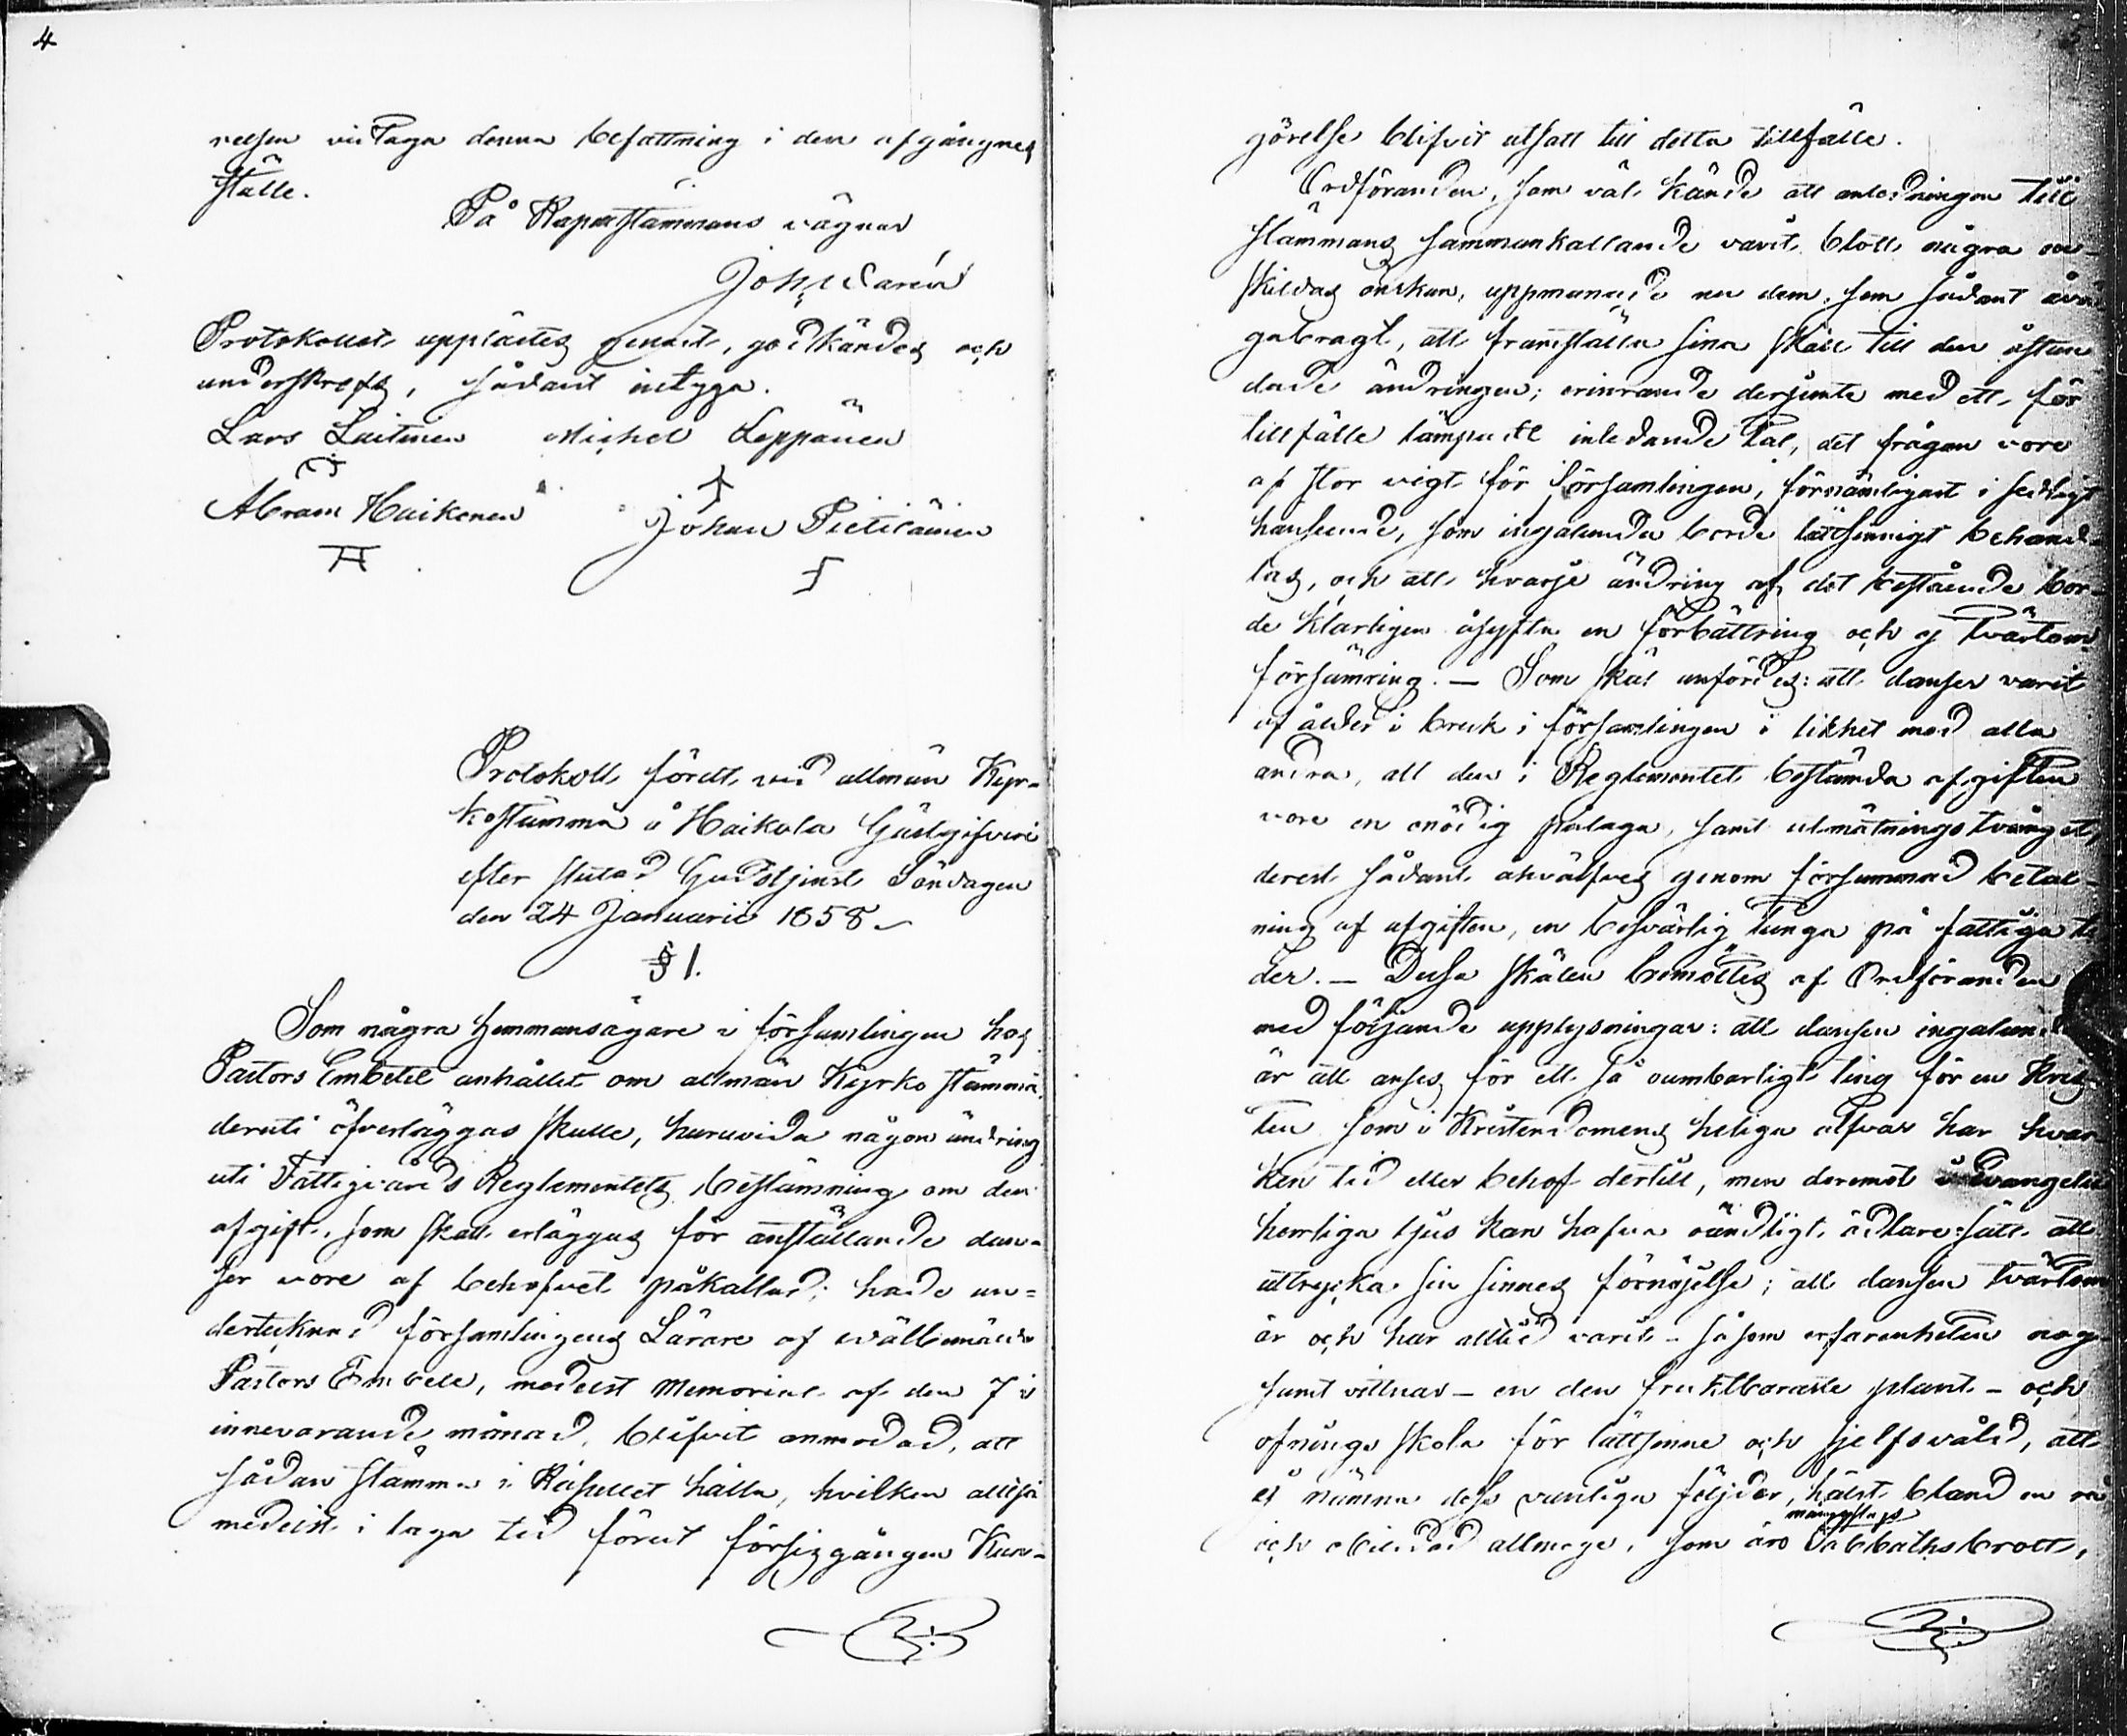 4
relsen vidtaga denna befattning i den afgångnes
ställe.
På Kapellstämmans vägnar
Joh.
Protokollet upplästes genast, godkändes och
underskrefs, sådant intyga.
Lars Laitinen Michel Leppänen
Abram Haikonen Johan Pietiläinen
Protokoll fördt vid allmän Kyr-
kostämma å Haikola Gästgifveri
efter slutad Gudstjenst Söndagen
den 24 Januarii 1858
§ 1.
Som några hemmansägare i församlingen hos
Pastors Embetet anhållit om allmän Kyrkostämma,
deruti öfverläggas skulle, huruvida någon ändring
uti Fattigvårds Reglementets bestämning om den
afgift, som skall erläggas för anställande dan-
ser vore af behofvet påkallad; hade un-
dertecknad församlingens Lärare af välbemälde
Pastors Embete, medelst Memorial af den 7 i
innevarande månad, blifvit anmodad, att
sådan stämma i Kapellet hålla, hvilken alltså
medelst i laga tid förut försiggången Kun-
görelse blifvit utsatt till detta tillfälle.
Ordföranden, som väl kände att anledningen till
stämmans sammankallande varit blott några en-
skildas önskan, uppmanade nu dem, som sådant åvä-
gabragt, att framställa sina skäl till den åstun-
dade ändringen; erinrande derjemte med ett, för
tillfälle lämpadt inledande tal, det frågan vore
af stor vigt för församlingen, förnämligast i sedligt
hänseende, som ingalunda borde lättsinnigt behand-
las, och att hvarje ändring af det bestående bor-
de klarligen åsyfta en förbättring och ej tvärtom
försämring. — Som skäl anfördes: att danser varit
af ålder i bruk i församlingen i likhet med alla
andra, att den i Reglementet bestämda afgiften
vore en onödig pålaga, samt utmätningstvånget,
derest sådant åhvälfves genom försummad betal-
ning af afgiften, en besvärlig tunga på fattiga ti-
der. — Dessa skälen bemöttes af Ordföranden
med följande upplysningar: att dansen ingalunda
är att anses för ett så oumbärligt ting för en Kris-
ten som i Kristendomens heliga allvar har hvar-
ken tid eller behof dertill, men deremot i Evangelii
herrliga ljus kan hafva oändligt ädlare sätt att
uttrycka sin sinnes förnöjelse; att dansen tvärtom
är och har alltid varit – såsom erfarenheten nog-
samt vittnar – en den fruktbaraste plant- och
öfnings skola för lättsinne och sjelfsvåld, att
ej nämna dess vanliga följder, hälst bland en rå
och obildad allmoge, som äro mangfaldigt Sabbathsbrott,